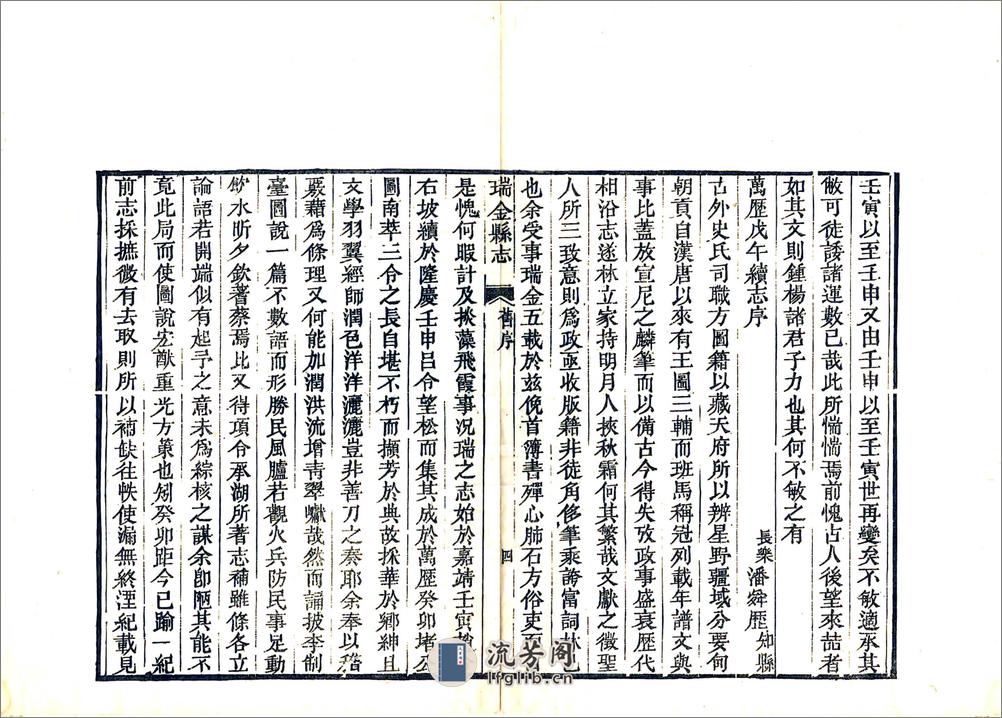 壬寅以至壬申又由壬申以至壬寅世再變矣不敏適承其
敝可徒諉諸運數已哉此所惴惴焉前愧古人後望來喆者
如其文則鍾楊諸君子力也其何不敏之有
萬歷戊午續志序
長樂潘舜歷知縣
古外史氏司職方圖籍以藏天府所以辨星野疆域分要荒
朝貢自漢唐以來有王圖三輔而班馬稱冠列載年譜文與
事比蓋放宣尼之麟筆而以備古今得失攷政事盛衰歷代
相沿志遂林立家持明月人挾秋霜何其繁哉文獻之徵聖
人所三致意則爲政亟收版籍非徒角侈筆乘誇富詞林已
也余受事瑞金五載於兹俛首簿書殫心肺石方俗吏
瑞金縣志
舊序
四
是愧何暇計及掞藻飛霞事况瑞之志始於嘉靖壬寅
右坡續於隆慶壬申呂令望松而集其成於萬歷癸卯堵
圖南萃三令之長自堪不朽而擷芳於典故採華於鄉紳且
文學羽翼經師潤色洋洋灑灑豈非善刀之奏耶余奉以稽
覈藉爲條理又何能加潤洪流增青翠巘哉然而誦披李制
臺圖說一篇不數語而形勝民風臚若觀火兵防民事足動
飲水昕夕欽著蔡焉比又得項令承湖所著志補雖條各立
論語若開端似有起予之意未爲綜核之謀余卽陋其能不
竟此局而使圖說宏猷重光方策也矧癸卯距今已踰一紀
前志採摭微有去取則所以補缺往帙使漏無終湮紀載見
流芳阁
lfglib.cn